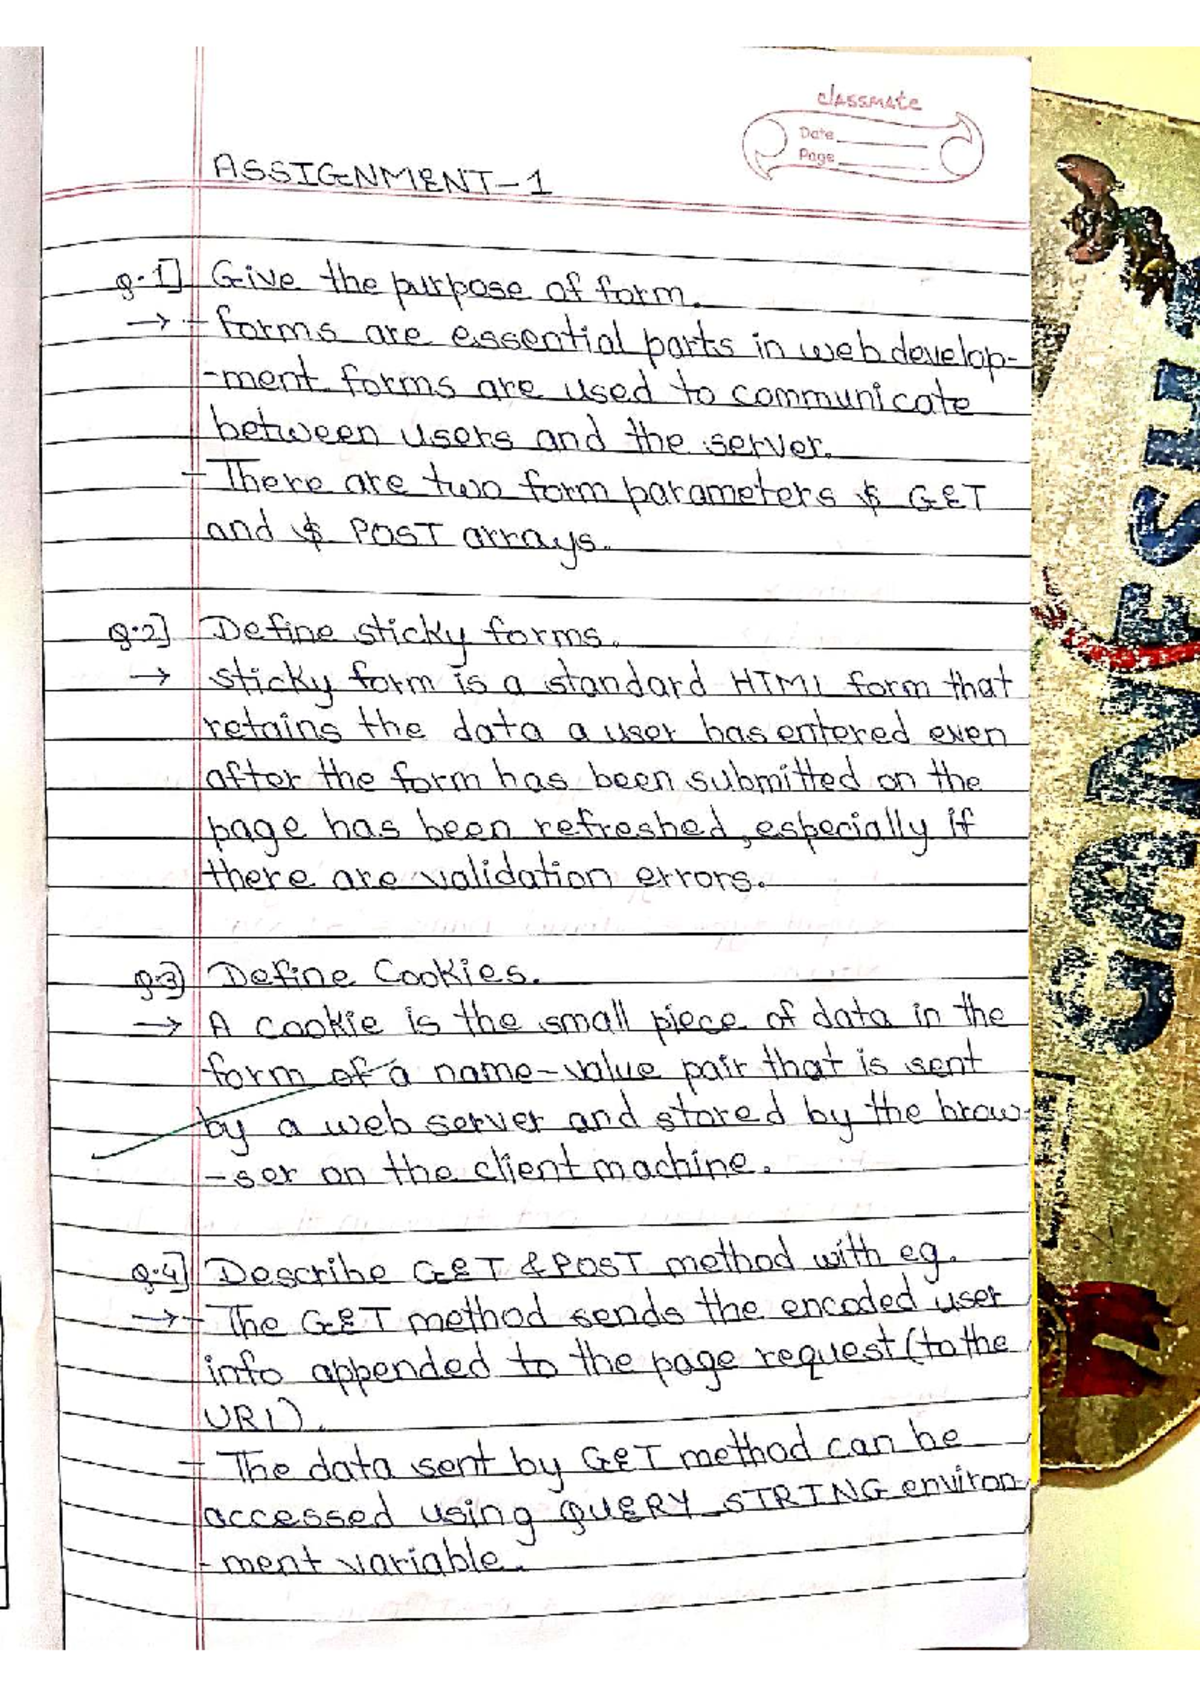 classmate
Date
Page
ASSIGNMENT-1
Q.1] Give the purpose of form.
→ - forms are essential parts in web develop-
-ment. forms are used to communicate
between users and the server.
- There are two form parameters $ GET
and $ POST arrays.
Q.2] Define sticky forms.
→ sticky form is a standard HTML form that
retains the data a user has entered even
after the form has been submitted on the
page has been refreshed, especially if
there are validation errors.
Q.3] Define Cookies.
→ A cookie is the small piece of data in the
form of a name-value pair that is sent
by a web server and stored by the brow-
-ser on the client machine.
Q.4] Describe GET & POST method with eg.
→ - The GET method sends the encoded user
info appended to the page request (to the
URL).
- The data sent by GET method can be
accessed using QUERY_STRING environ-
-ment variable.
GANESH